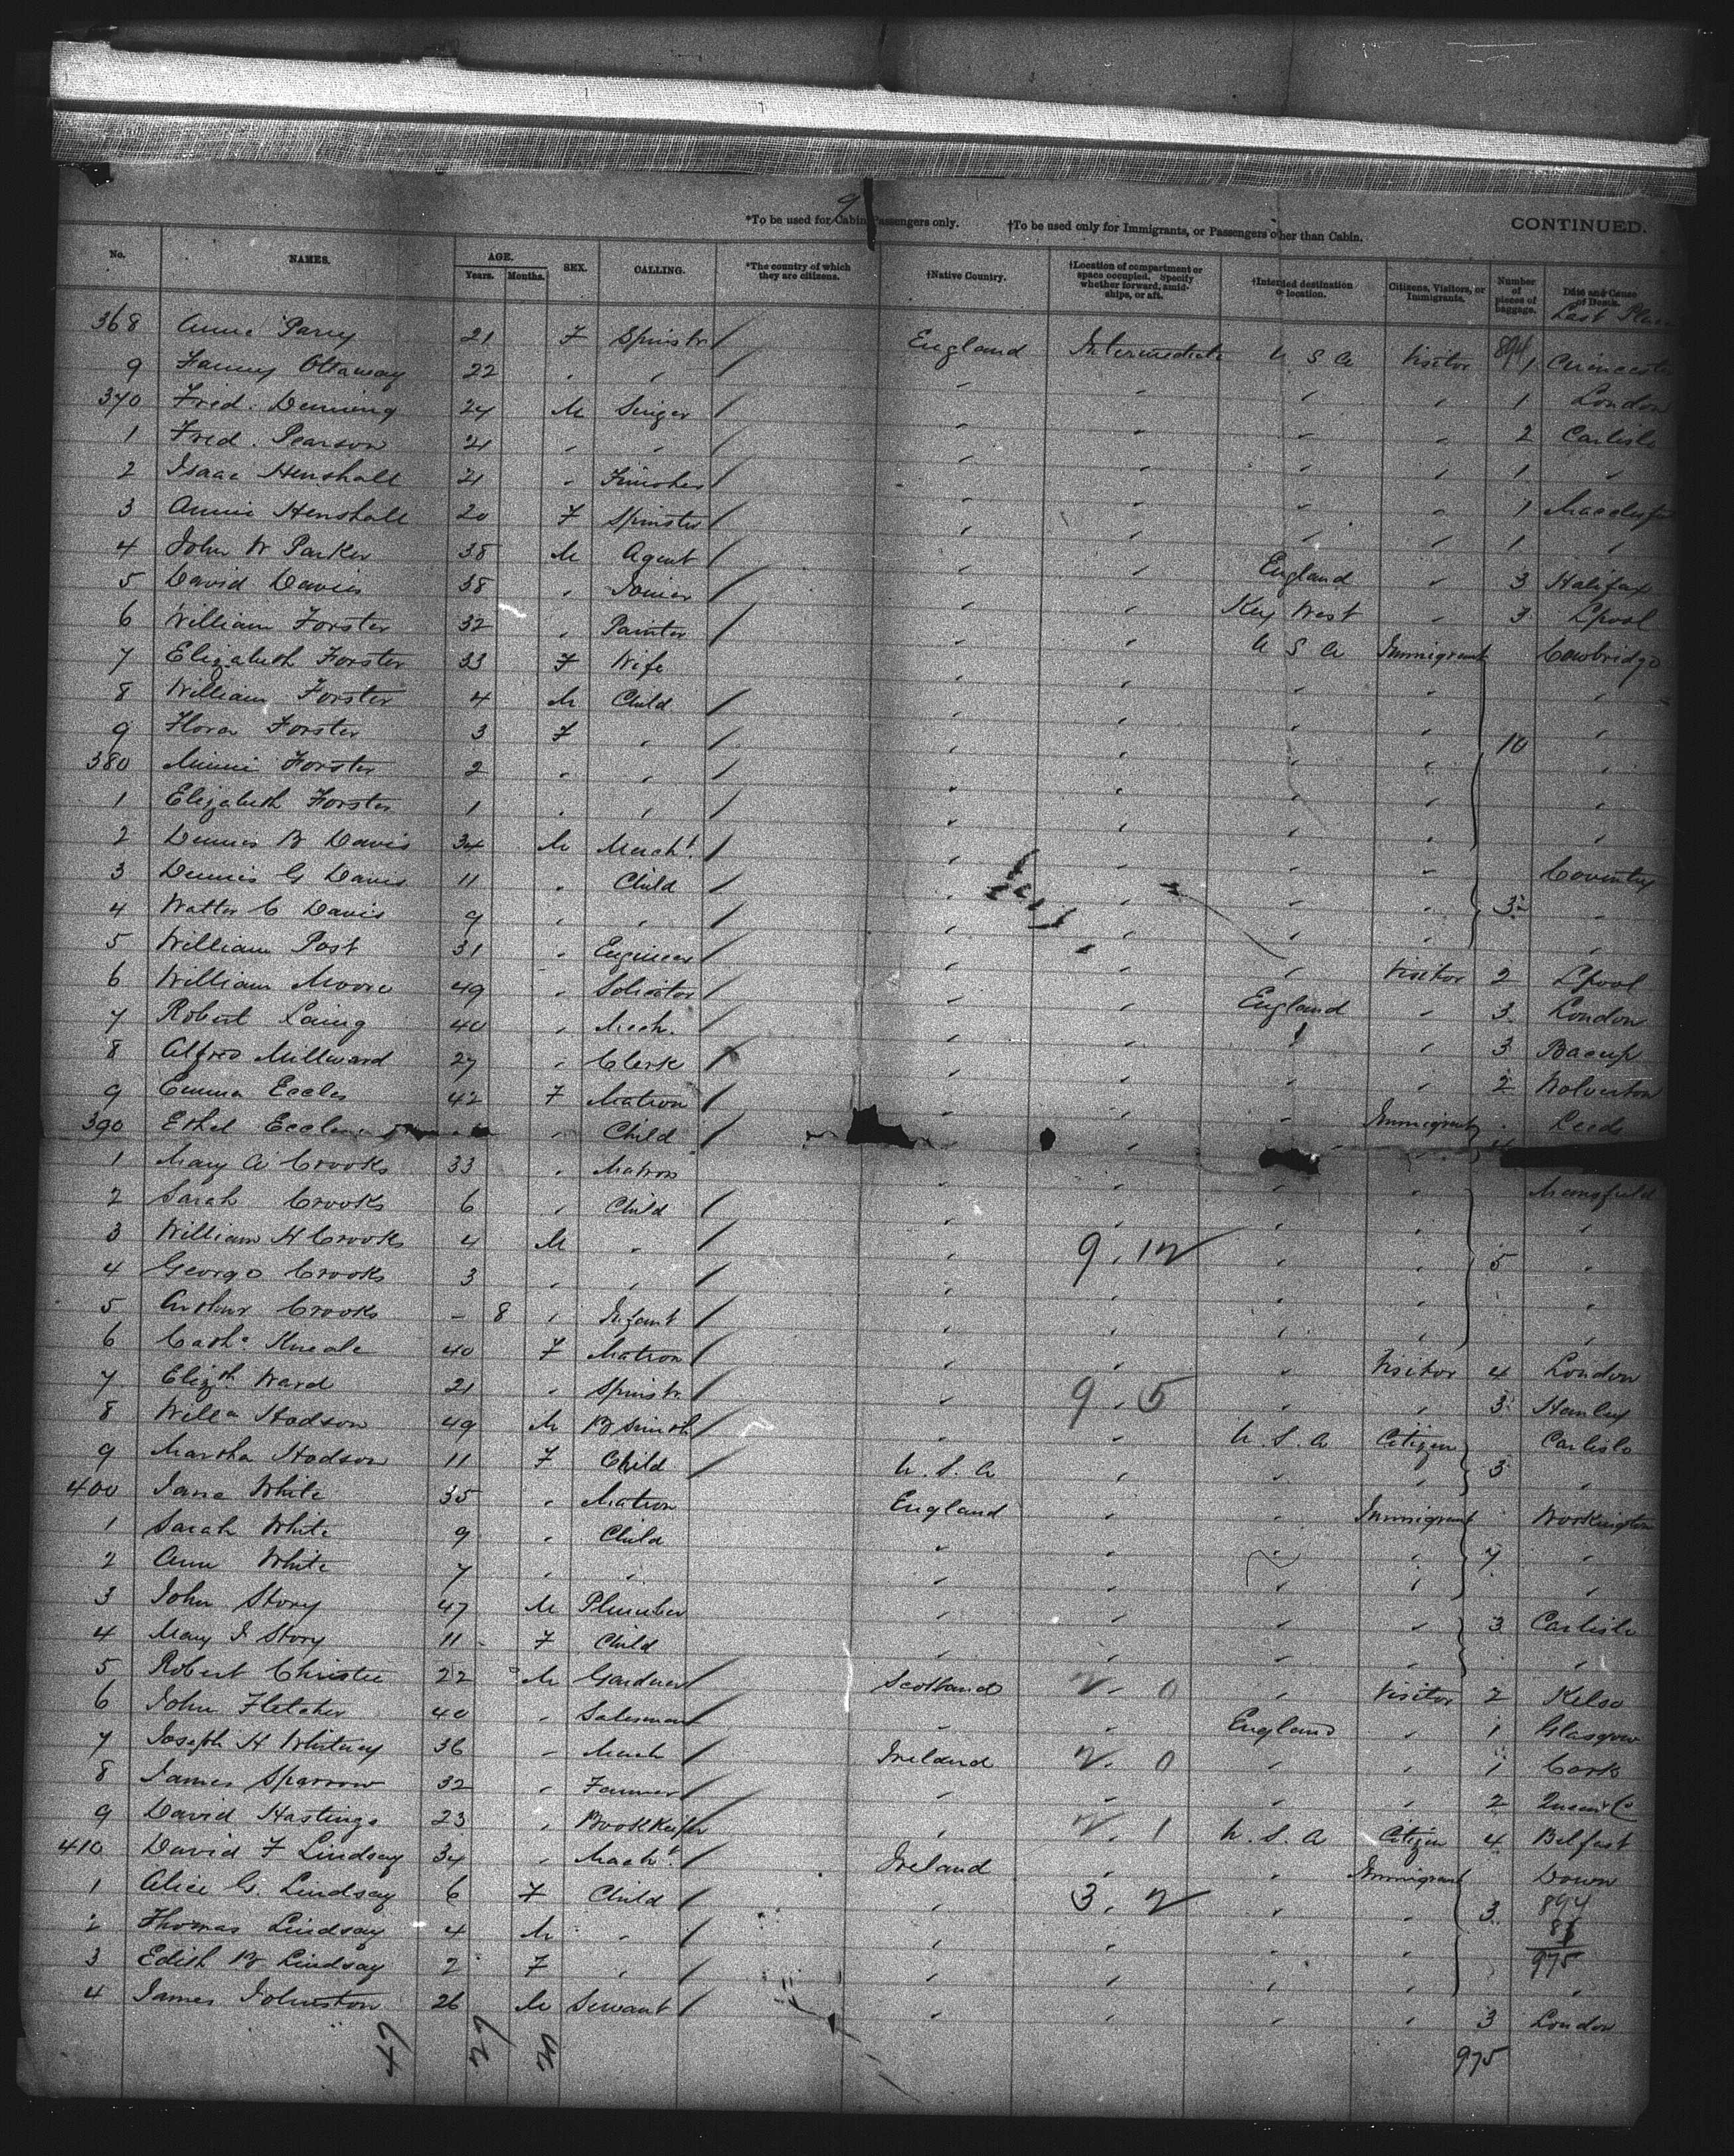 9
*To be used for Cabin Passengers only. †To be used only for Immigrants, or Passengers other than Cabin. CONTINUED.
No. NAMES. AGE. Years. Months. SEX. CALLING. *The country of which they are citizens. †Native Country. †Location of compartment or space occupied. Specify whether forward, amidships, or aft. †Intended destination or location. Citizens, Visitors, or Immigrants. Number of pieces of baggage. Date and Cause of Death.
Last Place
368 Annie Parry 21 F Spinstr / England Intermediate U S A Visitor 894 1 Cirincester
9 Fanny Ottaway 22 " " / " " " " 1 London
370 Fred. Denning 24 M Singer / " " " " 2 Carlisle
1 Fred. Pearson 21 " " / " " " " 1 "
2 Isaac Henshall 21 " Finisher / " " " " 1 Macclesfield
3 Annie Henshall 20 F Spinster / " " " " 1 "
4 John W Parker 38 M Agent / " " England " 3 Halifax
5 David Davies 38 " Joiner / " " Key West " 3 Lpool
6 William Forster 32 " Painter / " " U S A Immigrant Cowbridge
7 Elizabeth Forster 33 F Wife " " " " "
8 William Forster 4 M Child / " " " " "
9 Flora Forster 3 F " / " " " " 10 "
380 Minnie Forster 2 " " / " " " " "
1 Elizabeth Forster 1 " " / " " " " "
2 Dennis B Davis 34 M Mercht. / " " " " Coventry
3 Dennis G Davis 11 " Child / " " " " 3 "
4 Walter C Davis 9 " " / " " " " "
5 William Post 31 " Engineer / " " " Visitor 2 Lpool
6 William Moore 49 " Solicitor / " " England " 3 London
7 Robert Laing 40 " Mech. / " " " " 3 Bacup
8 Alfred Millward 27 " Clerk / " " " " 2 Wolverton
9 Emma Eccles 42 F Matron / " " " Immigrant Leeds
390 Ethel Eccles " Child / " " " "
1 Mary A Crooks 33 " Matron " " " " Mansfield
2 Sarah Crooks 6 " Child / " " " " "
3 William H Crooks 4 M " / " 9. 12 " " 5 "
4 George Crooks 3 " " / " " " " "
5 Arthur Crooks - 8 " Infant / " " " " "
6 Cathe Kneale 40 F Matron / " " " Visitor 4 London
7 Elizth Ward 21 " Spinstr. / " 9. 5 " " 3 Hanley
8 Willm Hodson 49 M B Smith / " " U. S. A Citizen Carlisle
9 Martha Hodson 11 F Child / U. S. A " " " 3 "
400 Jane White 35 " Matron England " " Immigrant Workington
1 Sarah White 9 " Child " " " " 7 "
2 Ann White 7 " " " " " " "
3 John Story 47 M Plumber " " " " 3 Carlisle
4 Mary J Story 11 F Child " " " " "
5 Robert Christie 22 M Gardner / Scotland 2. 0 " Visitor 2 Kelso
6 John Fletcher 40 " Salesman / " " England " 1 Glasgow
7 Joseph H Whitney 36 " Mech / Ireland 2. 0 " " 1 Cork
8 James Sparrow 32 " Farmer / " " " " 2 Queens Co
9 David Hastings 23 " Bookkeeper / " 2. 1 U. S. A Citizen 4 Belfast
410 David F Lindsay 34 " Mecht. / Ireland " " Immigrant Down
1 Alice G. Lindsay 6 F Child / " 3. 2 " " 3 894
2 Thomas Lindsay 4 M " / " " " " 81
3 Edith B Lindsay 2 F " / " " " " 975 "
4 James Johnston 26 M Servant / " " " " 3 London
47 27 20 975